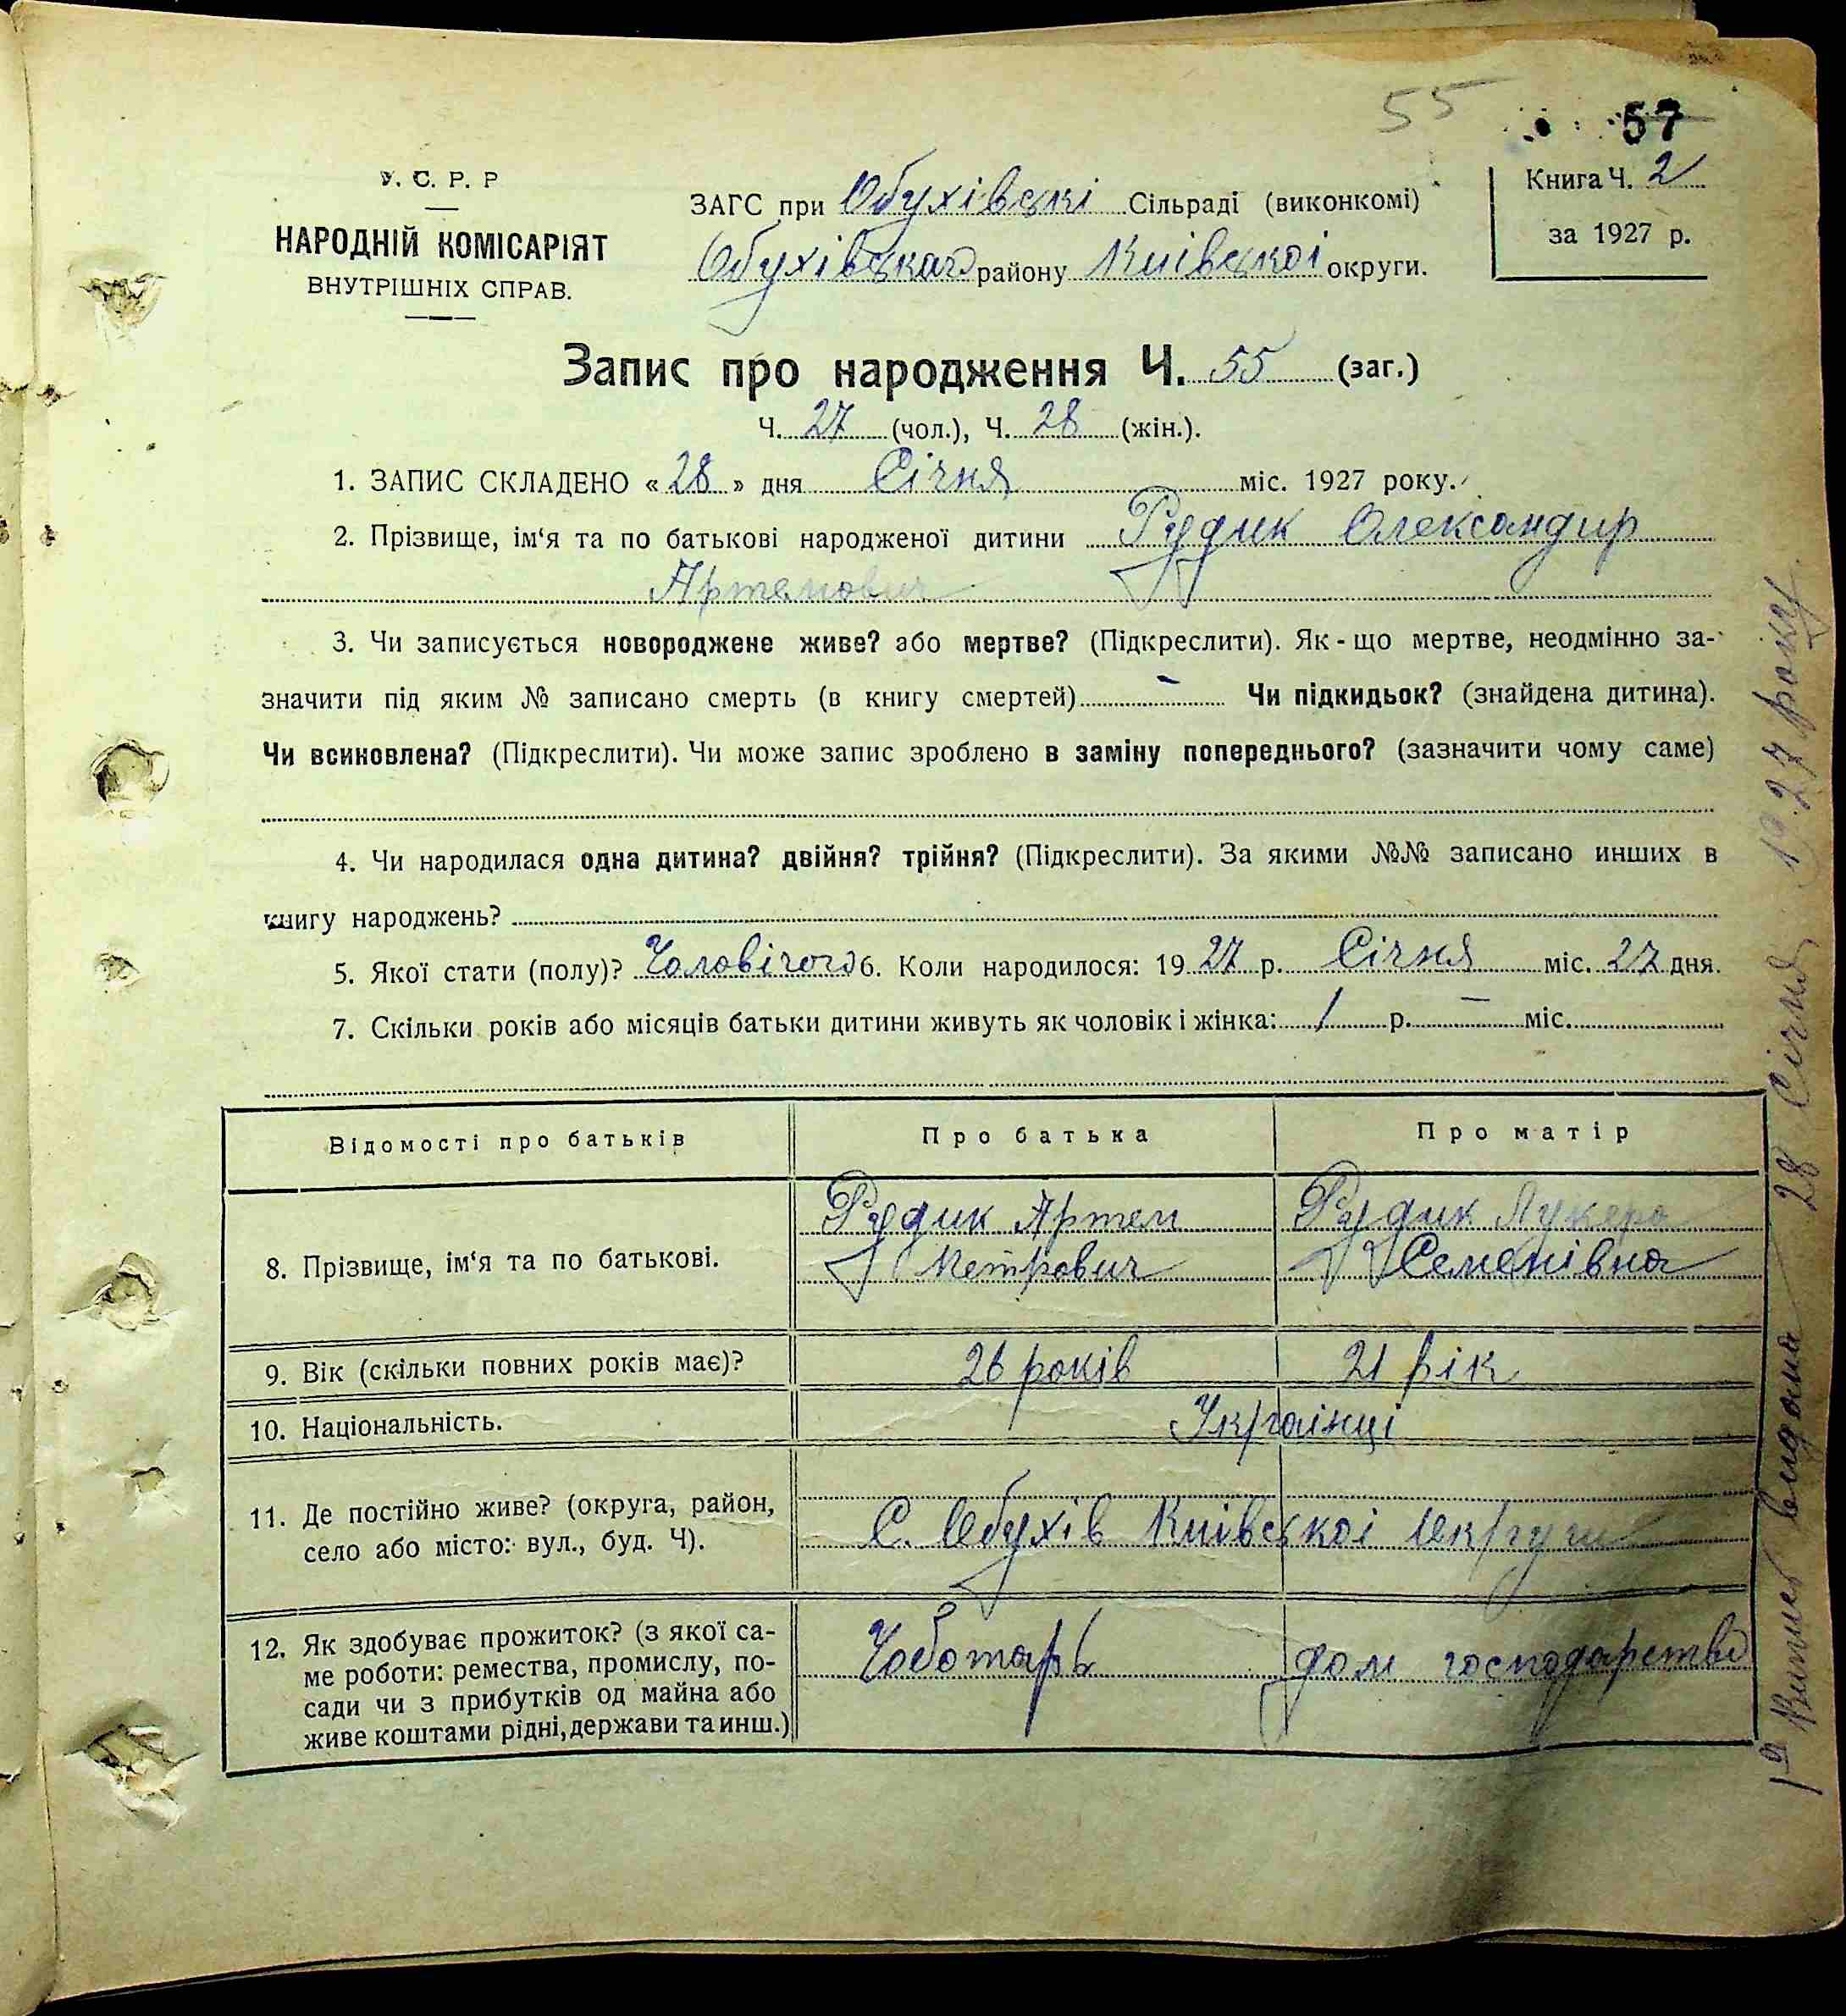 55
57
У. С. Р. Р
НАРОДНІЙ КОМІСАРІЯТ
ВНУТРІШНІХ СПРАВ.
ЗАГС при Обухівські Сільраді (виконкомі)
Обухівського району Київскої округи.
Книга Ч. 2
за 1927 р.
Запис про народження Ч. 55 (заг.)
Ч. 27 (чол.), Ч. 28 (жін.).
1. ЗАПИС СКЛАДЕНО « 28 » дня Січня міс. 1927 року.
2. Прізвище, ім‘я та по батькові народженої дитини Рудик Олександир
Артемович
3. Чи записується новороджене живе? або мертве? (Підкреслити). Як - що мертве, неодмінно за-
значити під яким № записано смерть (в книгу смертей) – Чи підкидьок? (знайдена дитина).
Чи всиновлена? (Підкреслити). Чи може запис зроблено в заміну попереднього? (зазначити чому саме)
4. Чи народилася одна дитина? двійня? трійня? (Підкреслити). За якими №№ записано инших в
книгу народжень?
5. Якої стати (полу)? Чоловічого 6. Коли народилося: 19 27 р. Січня міс. 27 дня.
7. Скільки років або місяців батьки дитини живуть як чоловік і жінка: 1 р. – міс.
Відомості про батьків
Про батька
Про матір
8. Прізвище, ім‘я та по батькові.
Рудик Артем
Петрович
Рудик Лукера
Семенівна
9. Вік (скільки повних років має)?
26 років
21 рік
10. Національність.
Українці
11. Де постійно живе? (округа, район,
село або місто: вул., буд. Ч).
С. Обухів Київської Округи
12. Як здобуває прожиток? (з якої са-
ме роботи: ремества, промислу, по-
сади чи з прибутків од майна або
живе коштами рідні, держави та инш.)
Чоботарь
дом господарство
видано 28 Січня 1927 року